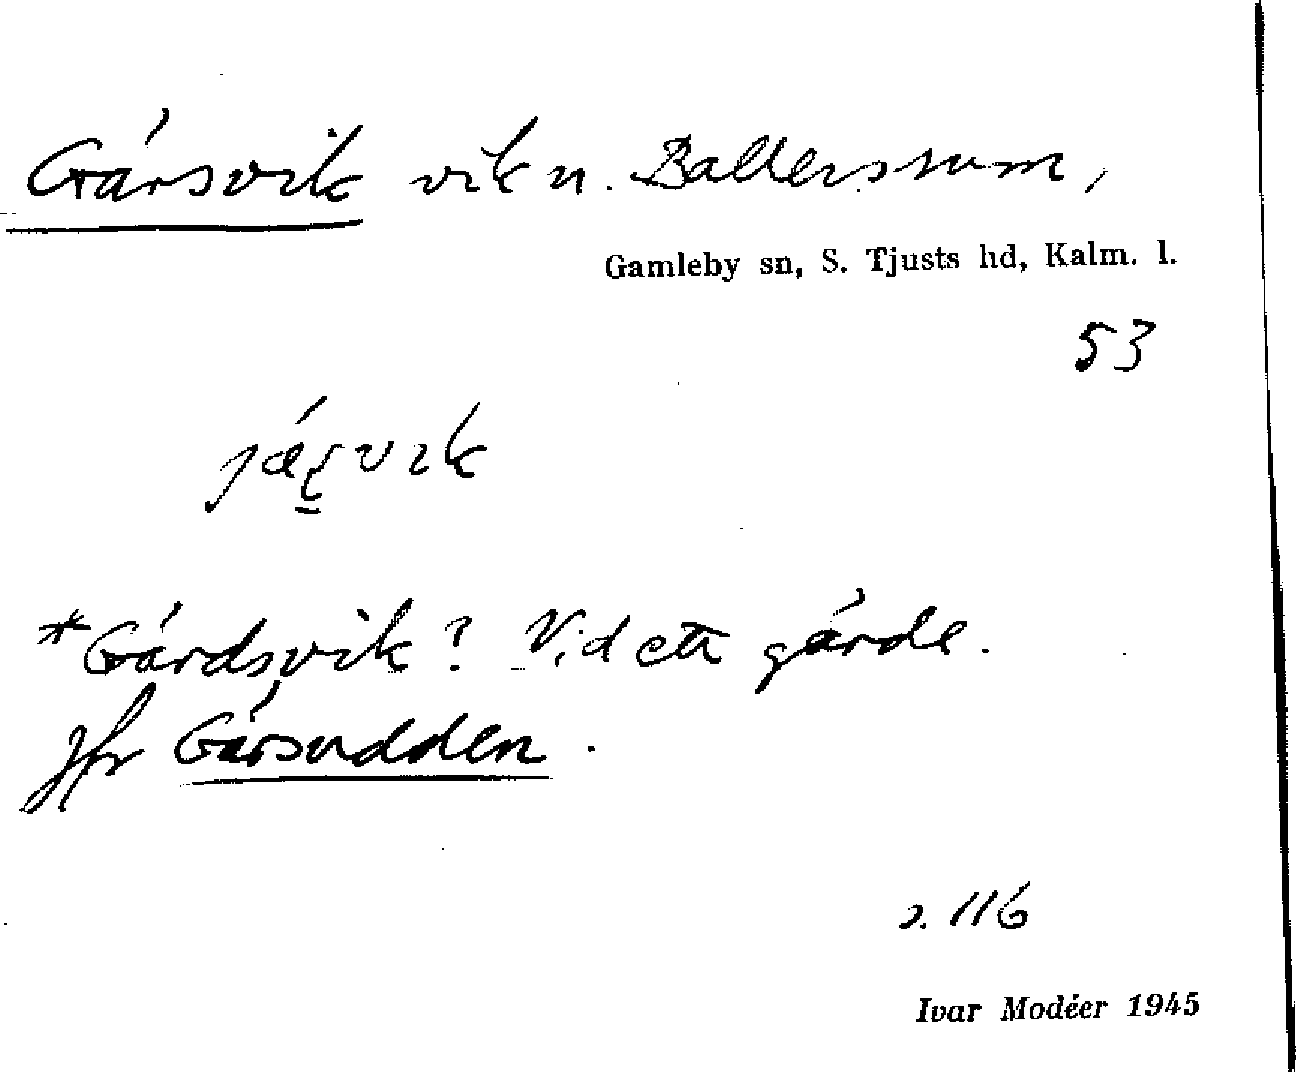 Gärsvik vik n. Ballersrum,
Gamleby sn, S. Tjusts hd, Kalm. l.
53
*Gärdsvik? Vid ett gärde.
Jfr Gärsudden.
s. 116
Ivar Modéer 1945